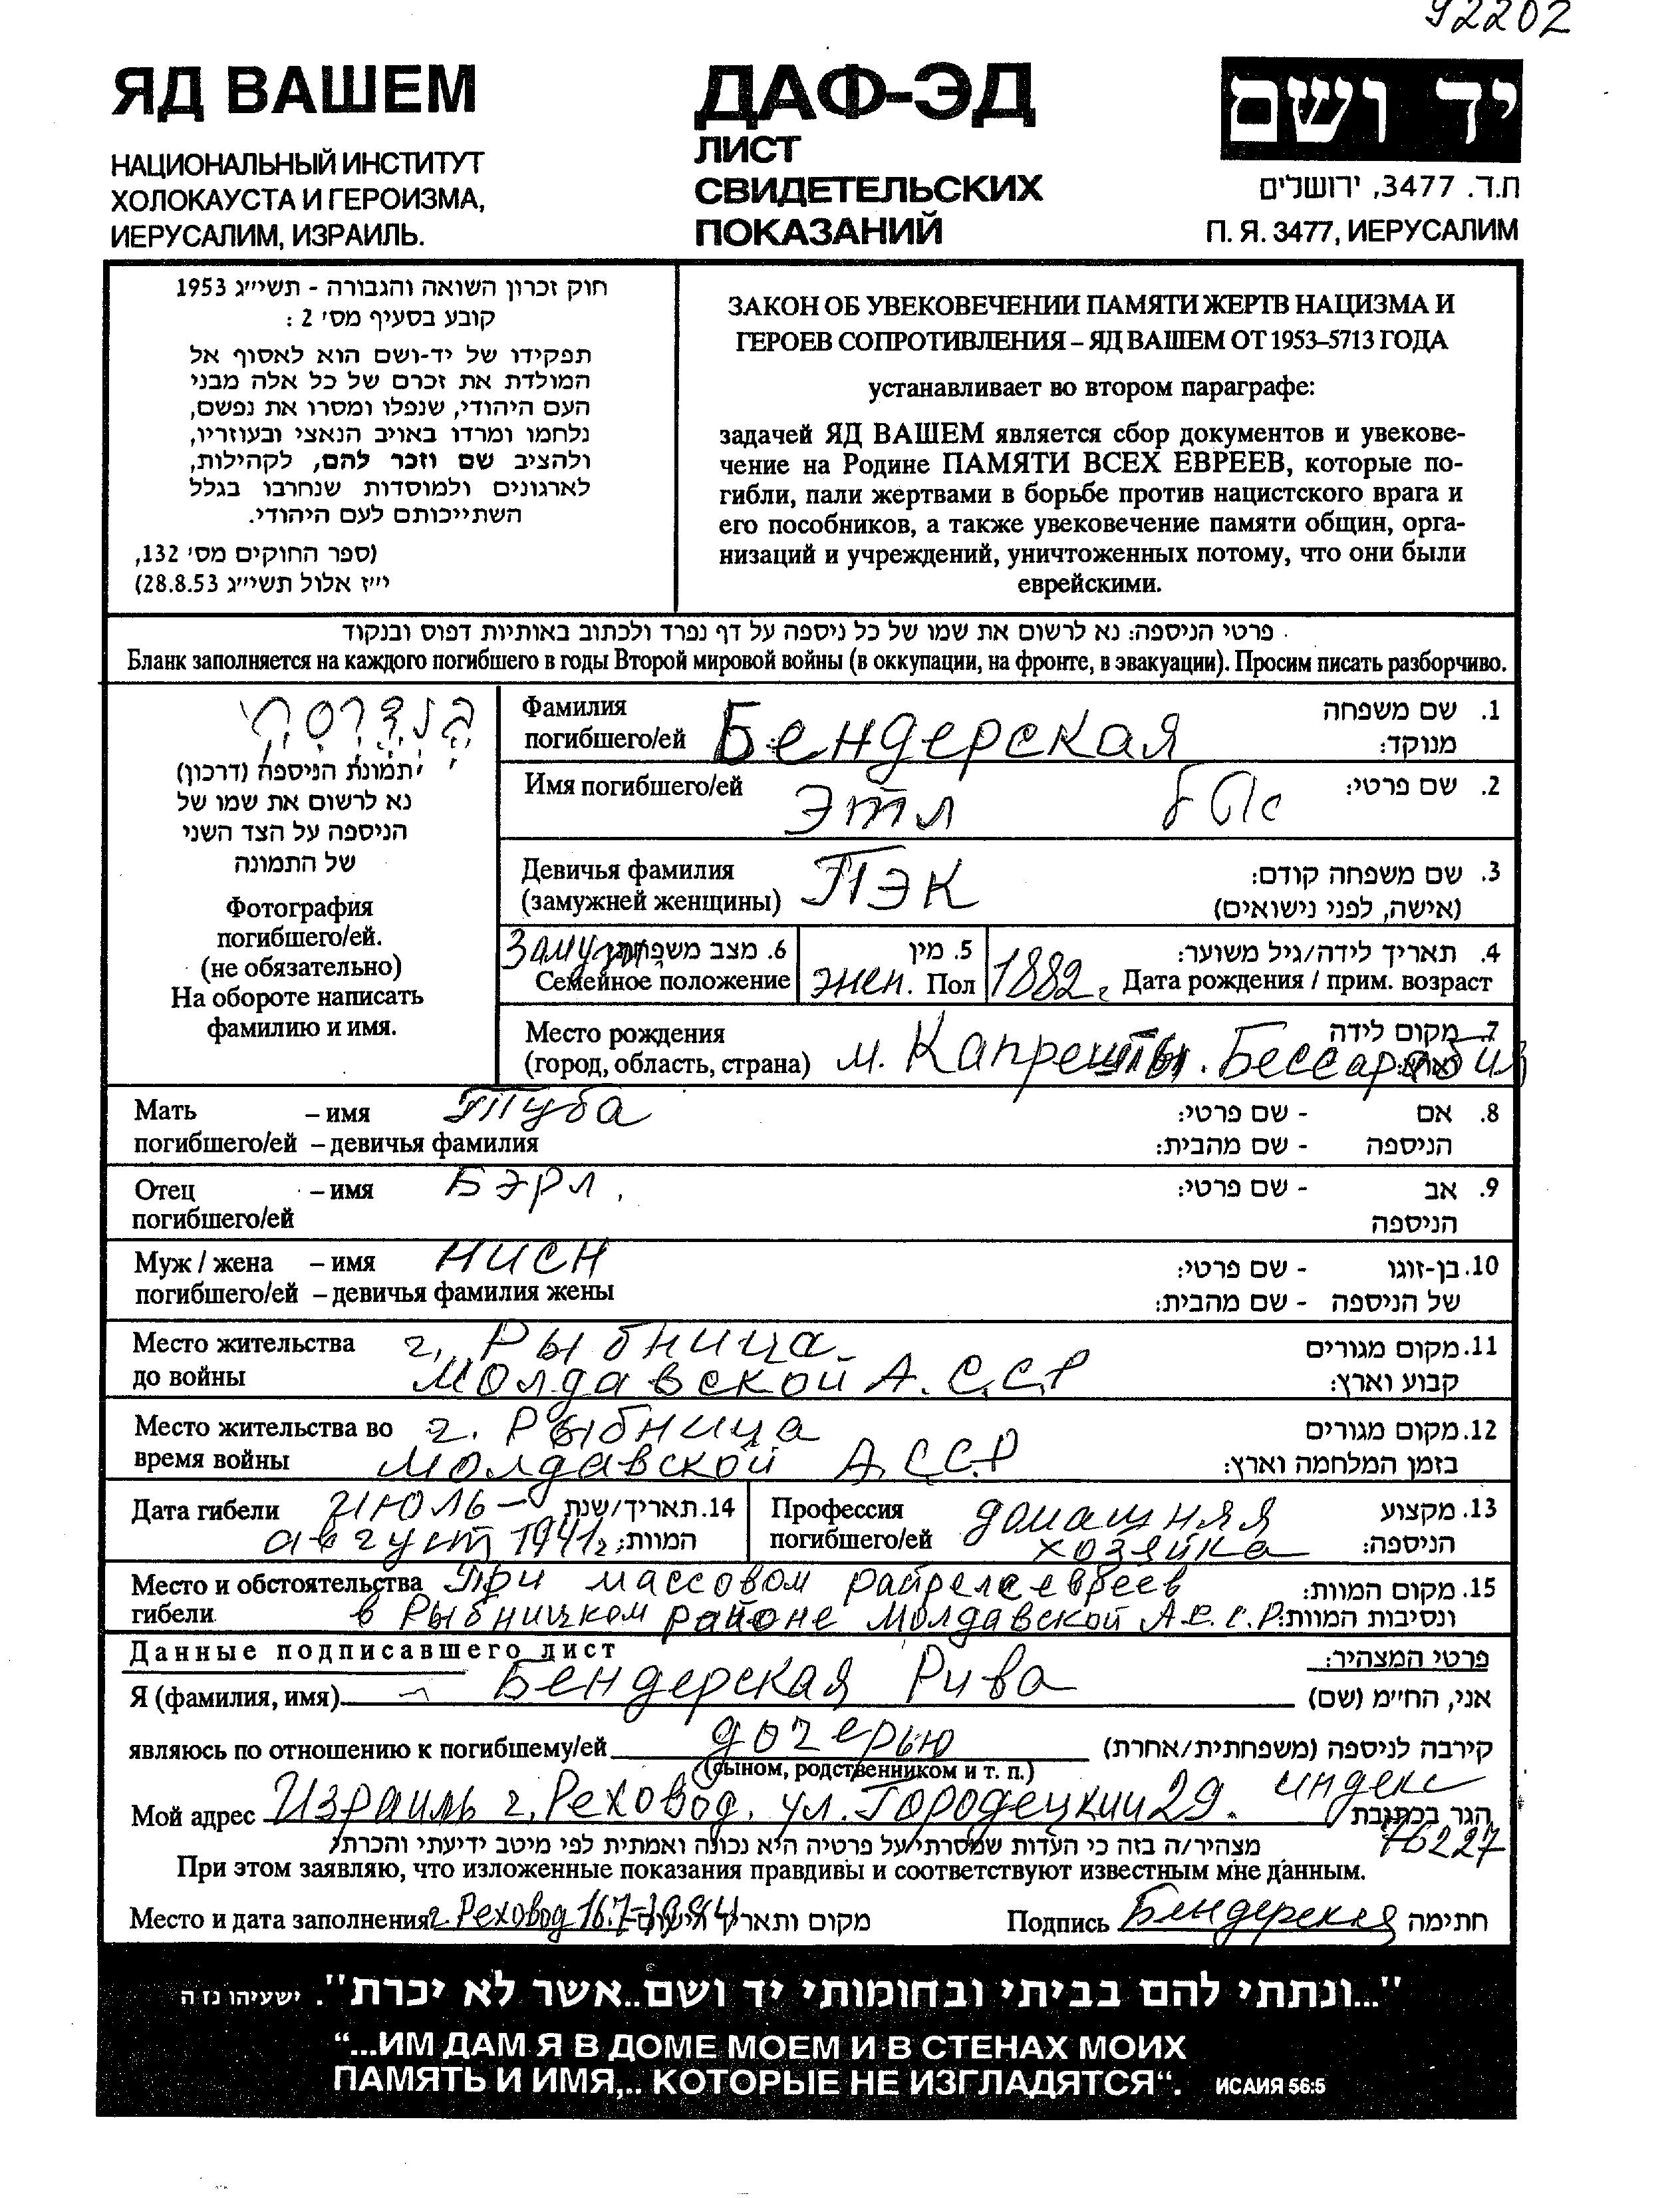 92202
ЯД ВАШЕМ
НАЦИОНАЛЬНЫЙ ИНСТИТУТ
ХОЛОКАУСТА И ГЕРОИЗМА,
ИЕРУСАЛИМ, ИЗРАИЛЬ.
ДАФ-ЭД
ЛИСТ
СВИДЕТЕЛЬСКИХ
ПОКАЗАНИЙ
יד ושם
ת.ד. 3477, ירושלים
П. Я. 3477, ИЕРУСАЛИМ
חוק זכרון השואה והגבורה - תשי״ג 1953
קובע בסעיף מס׳ 2 :
תפקידו של יד-ושם הוא לאסוף אל
המולדת את זכרם של כל אלה מבני
העם היהודי, שנפלו ומסרו את נפשם,
נלחמו ומרדו באויב הנאצי ובעוזריו,
ולהציב שם וזכר להם, לקהילות,
לארגונים ולמוסדות שנחרבו בגלל
השתייכותם לעם היהודי.
(ספר החוקים מס׳ 132,
י״ז אלול תשי״ג 28.8.53)
ЗАКОН ОБ УВЕКОВЕЧЕНИИ ПАМЯТИ ЖЕРТВ НАЦИЗМА И
ГЕРОЕВ СОПРОТИВЛЕНИЯ – ЯД ВАШЕМ ОТ 1953–5713 ГОДА
устанавливает во втором параграфе:
задачей ЯД ВАШЕМ является сбор документов и увекове-
чение на Родине ПАМЯТИ ВСЕХ ЕВРЕЕВ, которые по-
гибли, пали жертвами в борьбе против нацистского врага и
его пособников, а также увековечение памяти общин, орга-
низаций и учреждений, уничтоженных потому, что они были
еврейскими.
פרטי הניספה: נא לרשום את שמו של כל ניספה על דף נפרד ולכתוב באותיות דפוס ובנקוד
Бланк заполняется на каждого погибшего в годы Второй мировой войны (в оккупации, на фронте, в эвакуации). Просим писать разборчиво.
תמונת הניספה (דרכון)
נא לרשום את שמו של
הניספה על הצד השני
של התמונה
Фотография
погибшего/ей.
(не обязательно)
На обороте написать
фамилию и имя.
Фамилия 1. שם משפחה
погибшего/ей Бендерская מנוקד:
Имя погибшего/ей Этл 2. שם פרטי:
Девичья фамилия ПЭК 3. שם משפחה קודם:
(замужней женщины) (אישה, לפני נישואים)
Замужн 6. מצב משפחתי 5. מין 4. תאריך לידה/גיל משוער:
Семейное положение жен. Пол 1882г Дата рождения / прим. возраст
Место рождения 7. מקום לידה
(город, область, страна) м. Капрешты. Бессарабия
Мать – имя Туба 8. אם - שם פרטי:
погибшего/ей – девичья фамилия הניספה - שם מהבית:
Отец – имя Бэрл. 9. אב - שם פרטי:
погибшего/ей הניספה
Муж / жена – имя Нисн 10. בן-זוגו - שם פרטי:
погибшего/ей – девичья фамилия жены של הניספה - שם מהבית:
Место жительства г. Рыбница 11. מקום מגורים
до войны Молдавской А.С.С.Р קבוע וארץ:
Место жительства во г. Рыбница 12. מקום מגורים
время войны Молдавской АССР בזמן המלחמה וארץ:
Дата гибели июль – 14. תאריך/שנת
август 1941г המוות:
Профессия домашняя 13. מקצוע
погибшего/ей хозяйка הניספה:
Место и обстоятельства При массовом растреле евреев 15. מקום המוות:
гибели в Рыбницком районе Молдавской А.С.С.Р. ונסיבות המוות:
Данные подписавшего лист פרטי המצהיר:
Я (фамилия, имя) Бендерская Рива אני, הח״מ (שם)
являюсь по отношению к погибшему/ей дочерью קירבה לניספה (משפחתית/אחרת)
(сыном, родственником и т. п.)
Мой адрес Израиль г. Реховод, ул. Городецкии 29. индекс הגר בכתובת
76227
מצהיר/ה בזה כי העדות שמסרתי על פרטיה היא נכונה ואמתית לפי מיטב ידיעתי והכרתי
При этом заявляю, что изложенные показания правдивы и соответствуют известным мне данным.
Место и дата заполнения г. Реховод 16.7-1994 מקום ותאריך רישום Подпись Бендерская חתימה
"...ונתתי להם בביתי ובחומותי יד ושם..אשר לא יכרת". ישעיהו נז ה
“...ИМ ДАМ Я В ДОМЕ МОЕМ И В СТЕНАХ МОИХ
ПАМЯТЬ И ИМЯ,.. КОТОРЫЕ НЕ ИЗГЛАДЯТСЯ“. ИСАИЯ 56:5